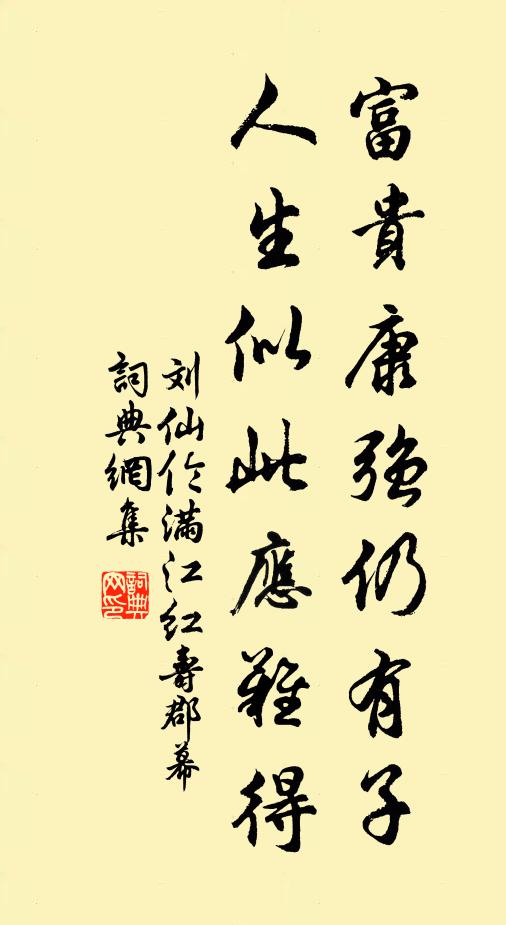 富貴康強仍有子
人生似此應難得
刘仙伦满江红壽郡幕
詞典網集
詞典网印